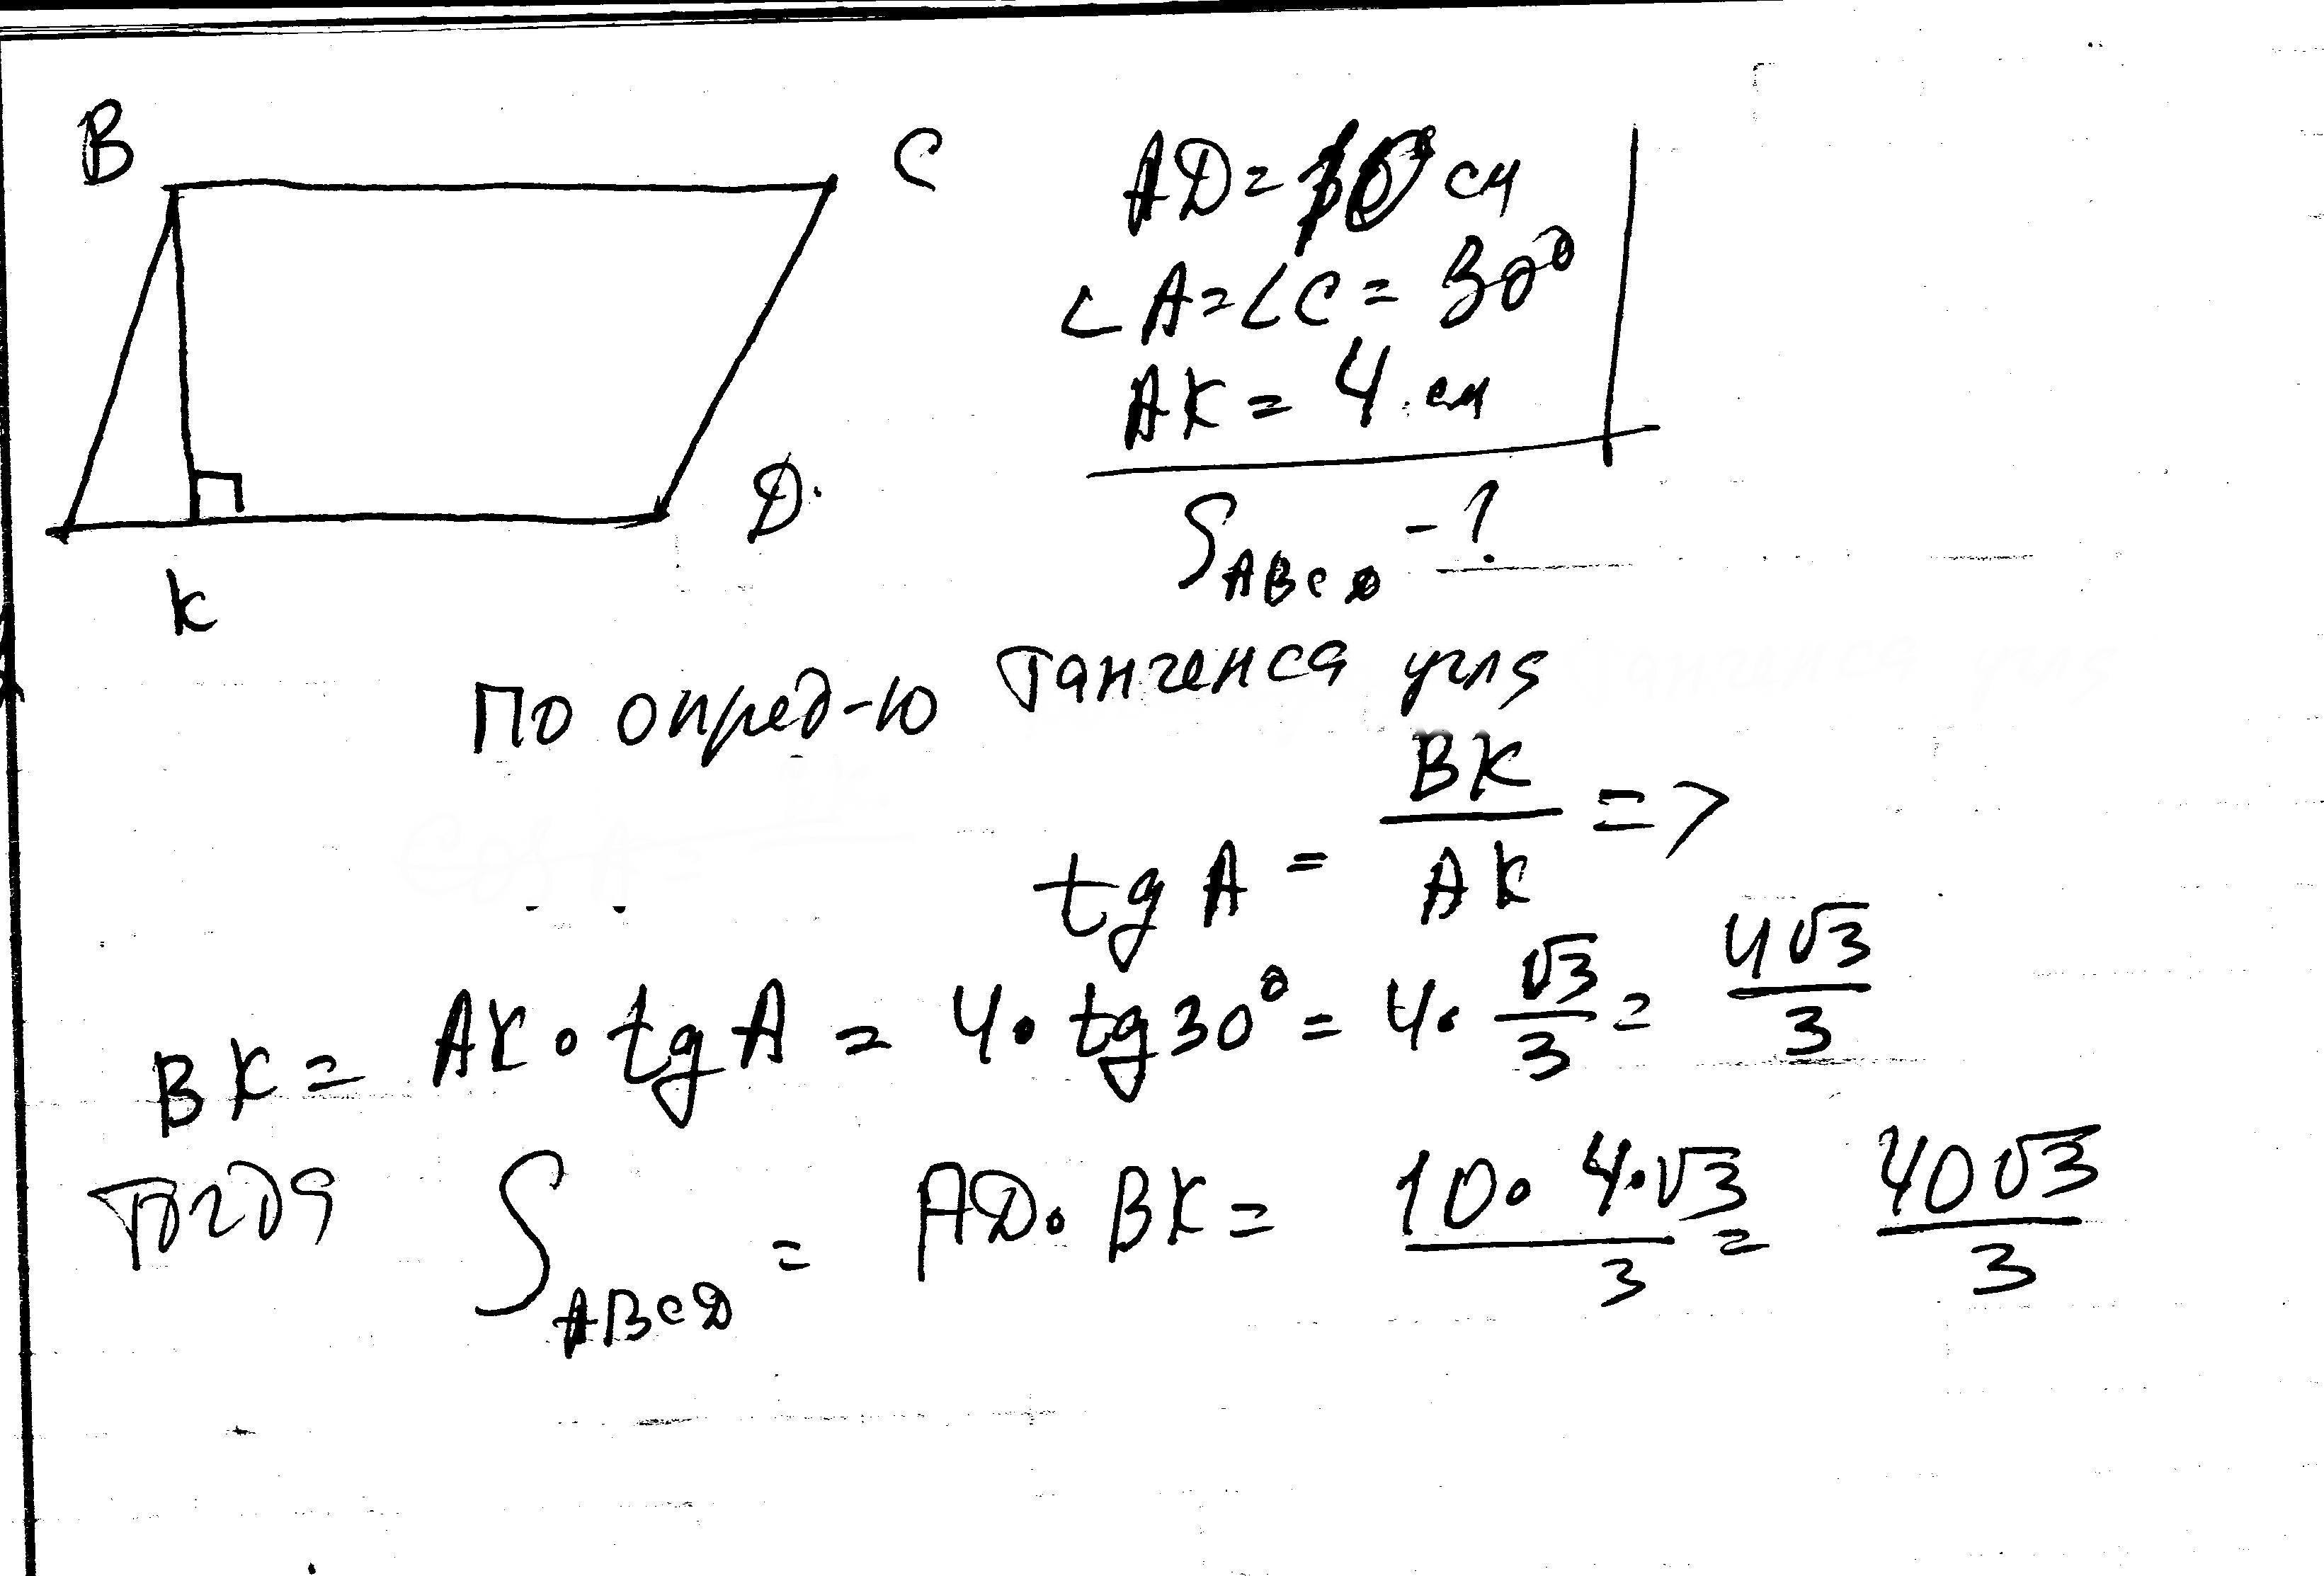 B C
AD = 10 см
∠A = ∠C = 30°
AK = 4 см
D
K
S_ABCD - ?
По опред-ю тангенса угла
tg A = BK/AK =>
BK = AK · tg A = 4 · tg 30° = 4 · √3/3 = 4√3/3
Тогда S_ABCD = AD · BK = 10 · 4 · √3/3 = 40√3/3